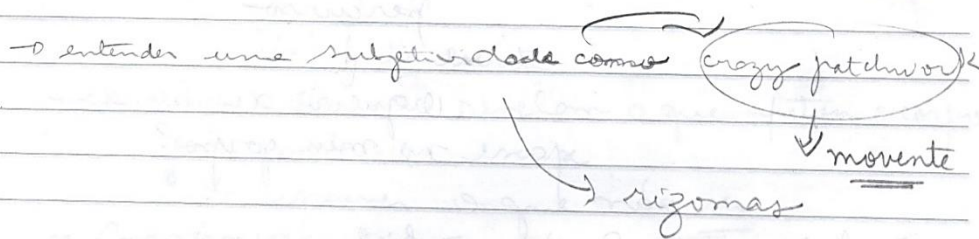 → entender uma subjetividade como crazy patchwork
movente
rizomas